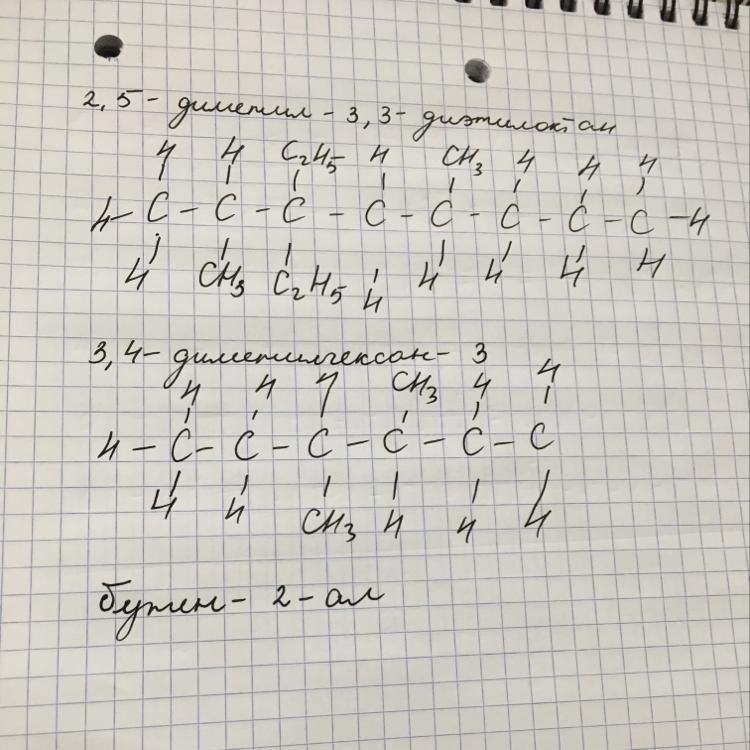 2,5- диметил - 3,3- диэтилоктан
H H C2H5 H CH3 H H H
H- C - C - C - C - C - C - C - C -H
H CH3 C2H5 H H H H H
3,4- диметилгексан- 3
H H H CH3 H H
H - C - C - C - C - C - C
H H CH3 H H H
бутен- 2-ал